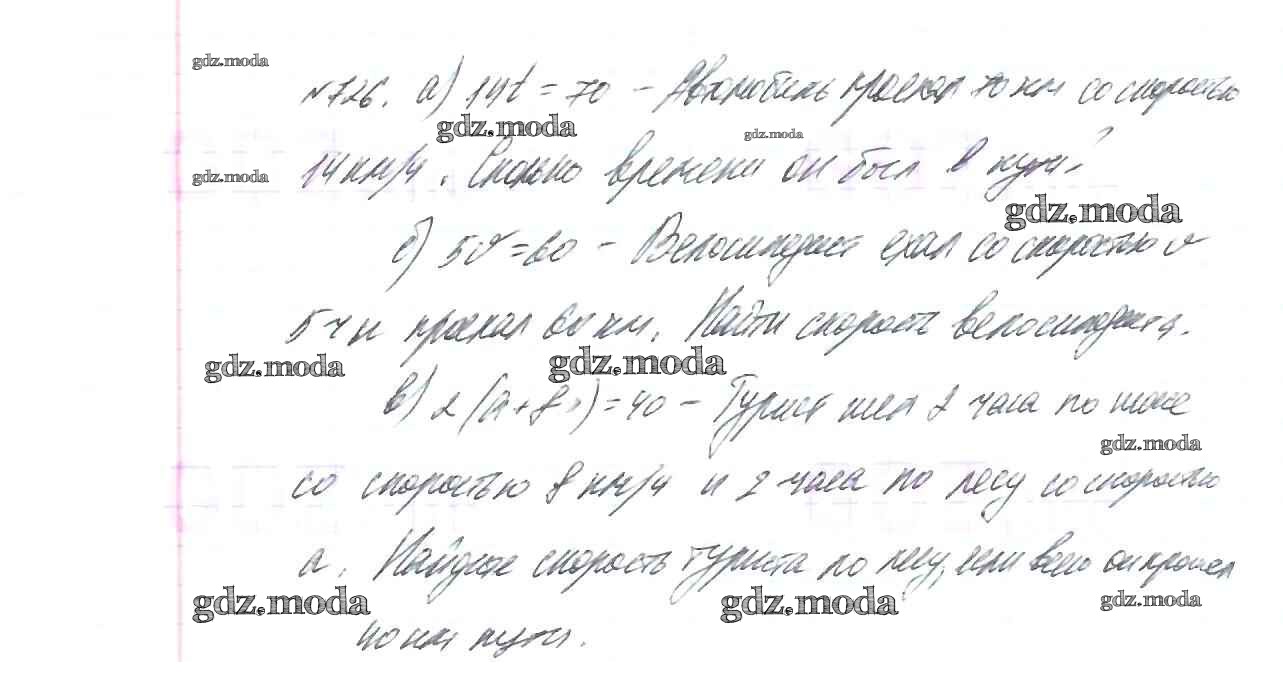 gdz.moda
№726. а) 14t = 70 – Автомобиль проехал 70 км со скоростью
gdz.moda gdz.moda
gdz.moda 14 км/ч. Сколько времени он был в пути?
gdz.moda
б) 5v = 60 – Велосипедист ехал со скоростью v
5 ч и проехал 60 км. Найти скорость велосипедиста.
gdz.moda gdz.moda
в) 2(a + 8) = 40 – Турист шел 2 часа по
gdz.moda
со скоростью 8 км/ч и 2 часа по лесу со скоростью
a. Найдите скорость туриста по лесу, если всего он прошел
gdz.moda gdz.moda gdz.moda
40 км пути.